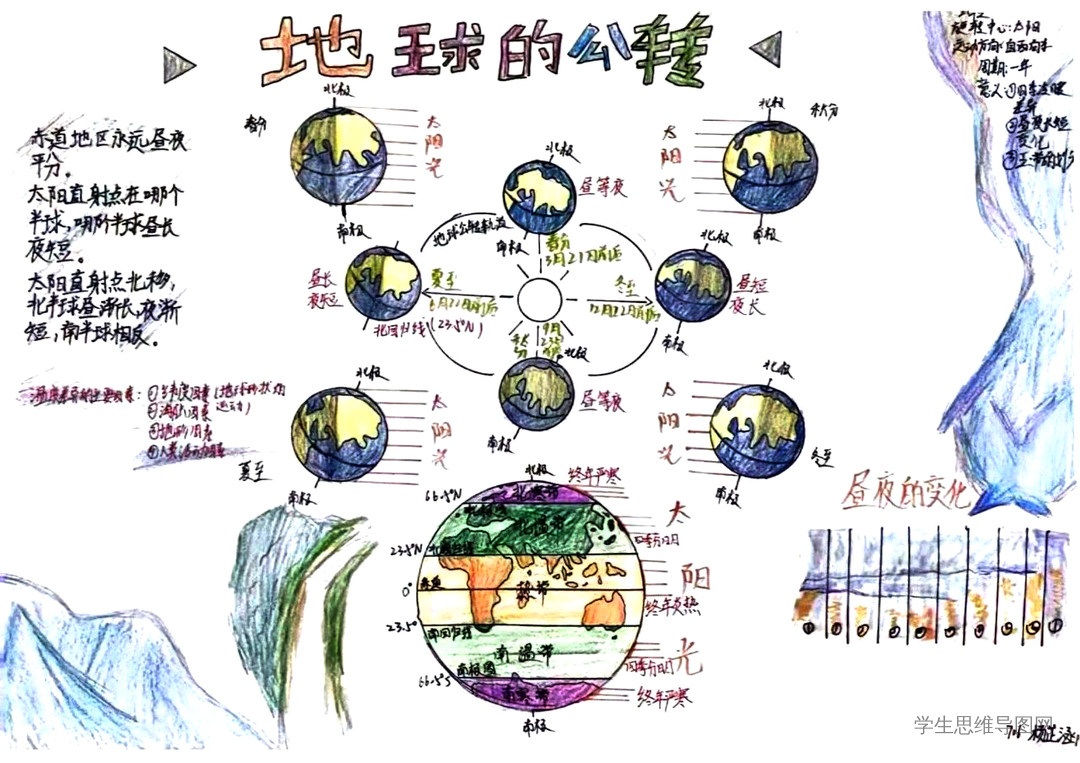 地球的公转
绕转中心:太阳
运动方向:自西向东
周期:一年
意义:①四季
差异
②昼夜长短
变化
赤道地区永远昼夜
平分。
太阳直射点在哪个
半球,哪个半球昼长
夜短。
太阳直射点北移,
北半球昼渐长,夜渐
短,南半球相反。
北极
春分
太
阳
光
南极
北极
秋分
太
阳
光
南极
北极
昼等夜
南极
地球公转轨道
春分
3月21日前后
昼长
夜短
夏至
6月22日前后
北回归线(23.5°N)
北极
冬至
12月22日前后
昼短
夜长
南极
秋分
9月
23日
北极
昼等夜
南极
①纬度因素(地球形状
②海陆因素
③地形因素
④人类活动
北极
太
阳
光
夏至
南极
北极
太
阳
光
冬至
南极
北极
终年严寒
66.5°N
北寒带
北温带
四季分明
23.5°N
北回归线
0°
热带
终年炎热
23.5°
南回归线
南温带
四季分明
南极圈
66.5°S
南寒带
终年严寒
南极
太
阳
光
昼夜的变化
学生思维导图网